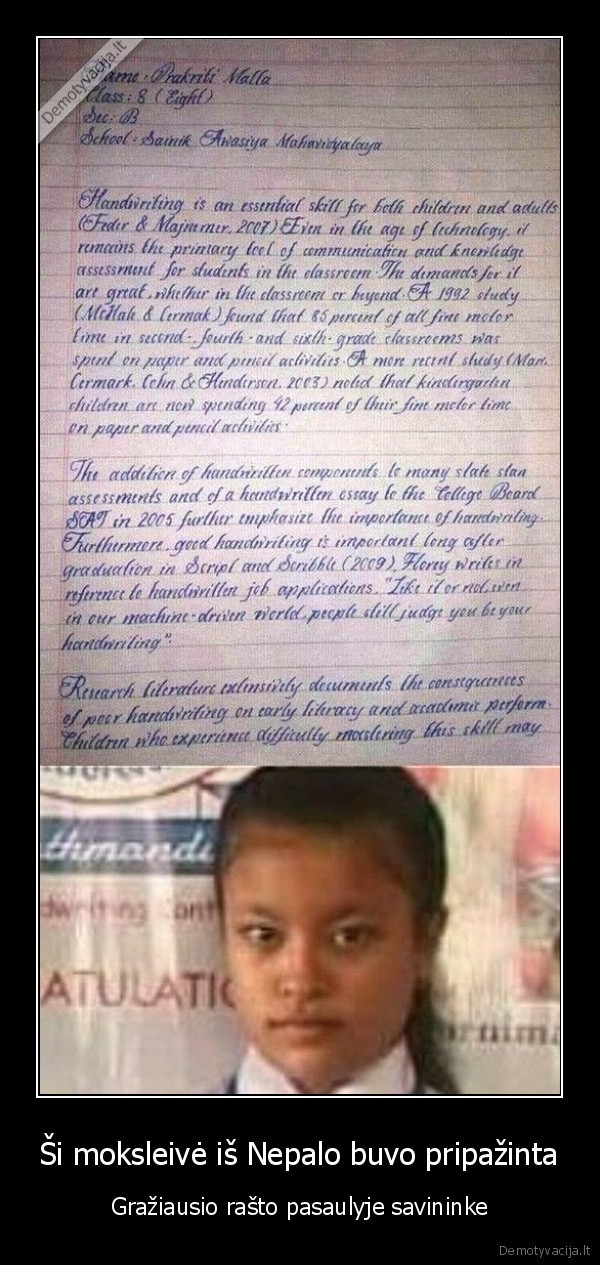 Demotyvacija.lt
Name : Prakriti Malla
Class : 8 (Eight)
Sec : B
School : Sainik Awasiya Mahavidyalaya
Handwriting is an essential skill for both children and adults
(Feder & Majnemer, 2007) Even in the age of technology, it
remains the primary tool of communication and knowledge
assessment for students in the classroom. The demands for it
are great, whether in the classroom or beyond. A 1992 study
(McHale & Cermak) found that 85 percent of all fine motor
time in second-, fourth-and sixth-grade classrooms was
spent on paper and pencil activities. A more recent study (Marr,
Cermark, Cohn & Henderson, 2003) noted that kindergarten
children are now spending 42 percent of their fine motor time
on paper and pencil activities.
The addition of handwritten components to many state stan
assessments and of a handwritten essay to the College Board
SAT in 2005 further emphasize the importance of handwriting.
Furthermore, good handwriting is important long after
graduation in Script and Scribble (2009), Florey writes in
reference to handwritten job applications, "Like it or not, even
in our machine-driven world, people still judge you be your
handwriting".
Research literature extensively documents the consequences
of poor handwriting on early literacy and academic perform.
Children who experience difficulty mastering this skill may
thmandu
dwriting Cont
ATULATIO
urnima
Ši moksleivė iš Nepalo buvo pripažinta
Gražiausio rašto pasaulyje savininke
Demotyvacija.lt